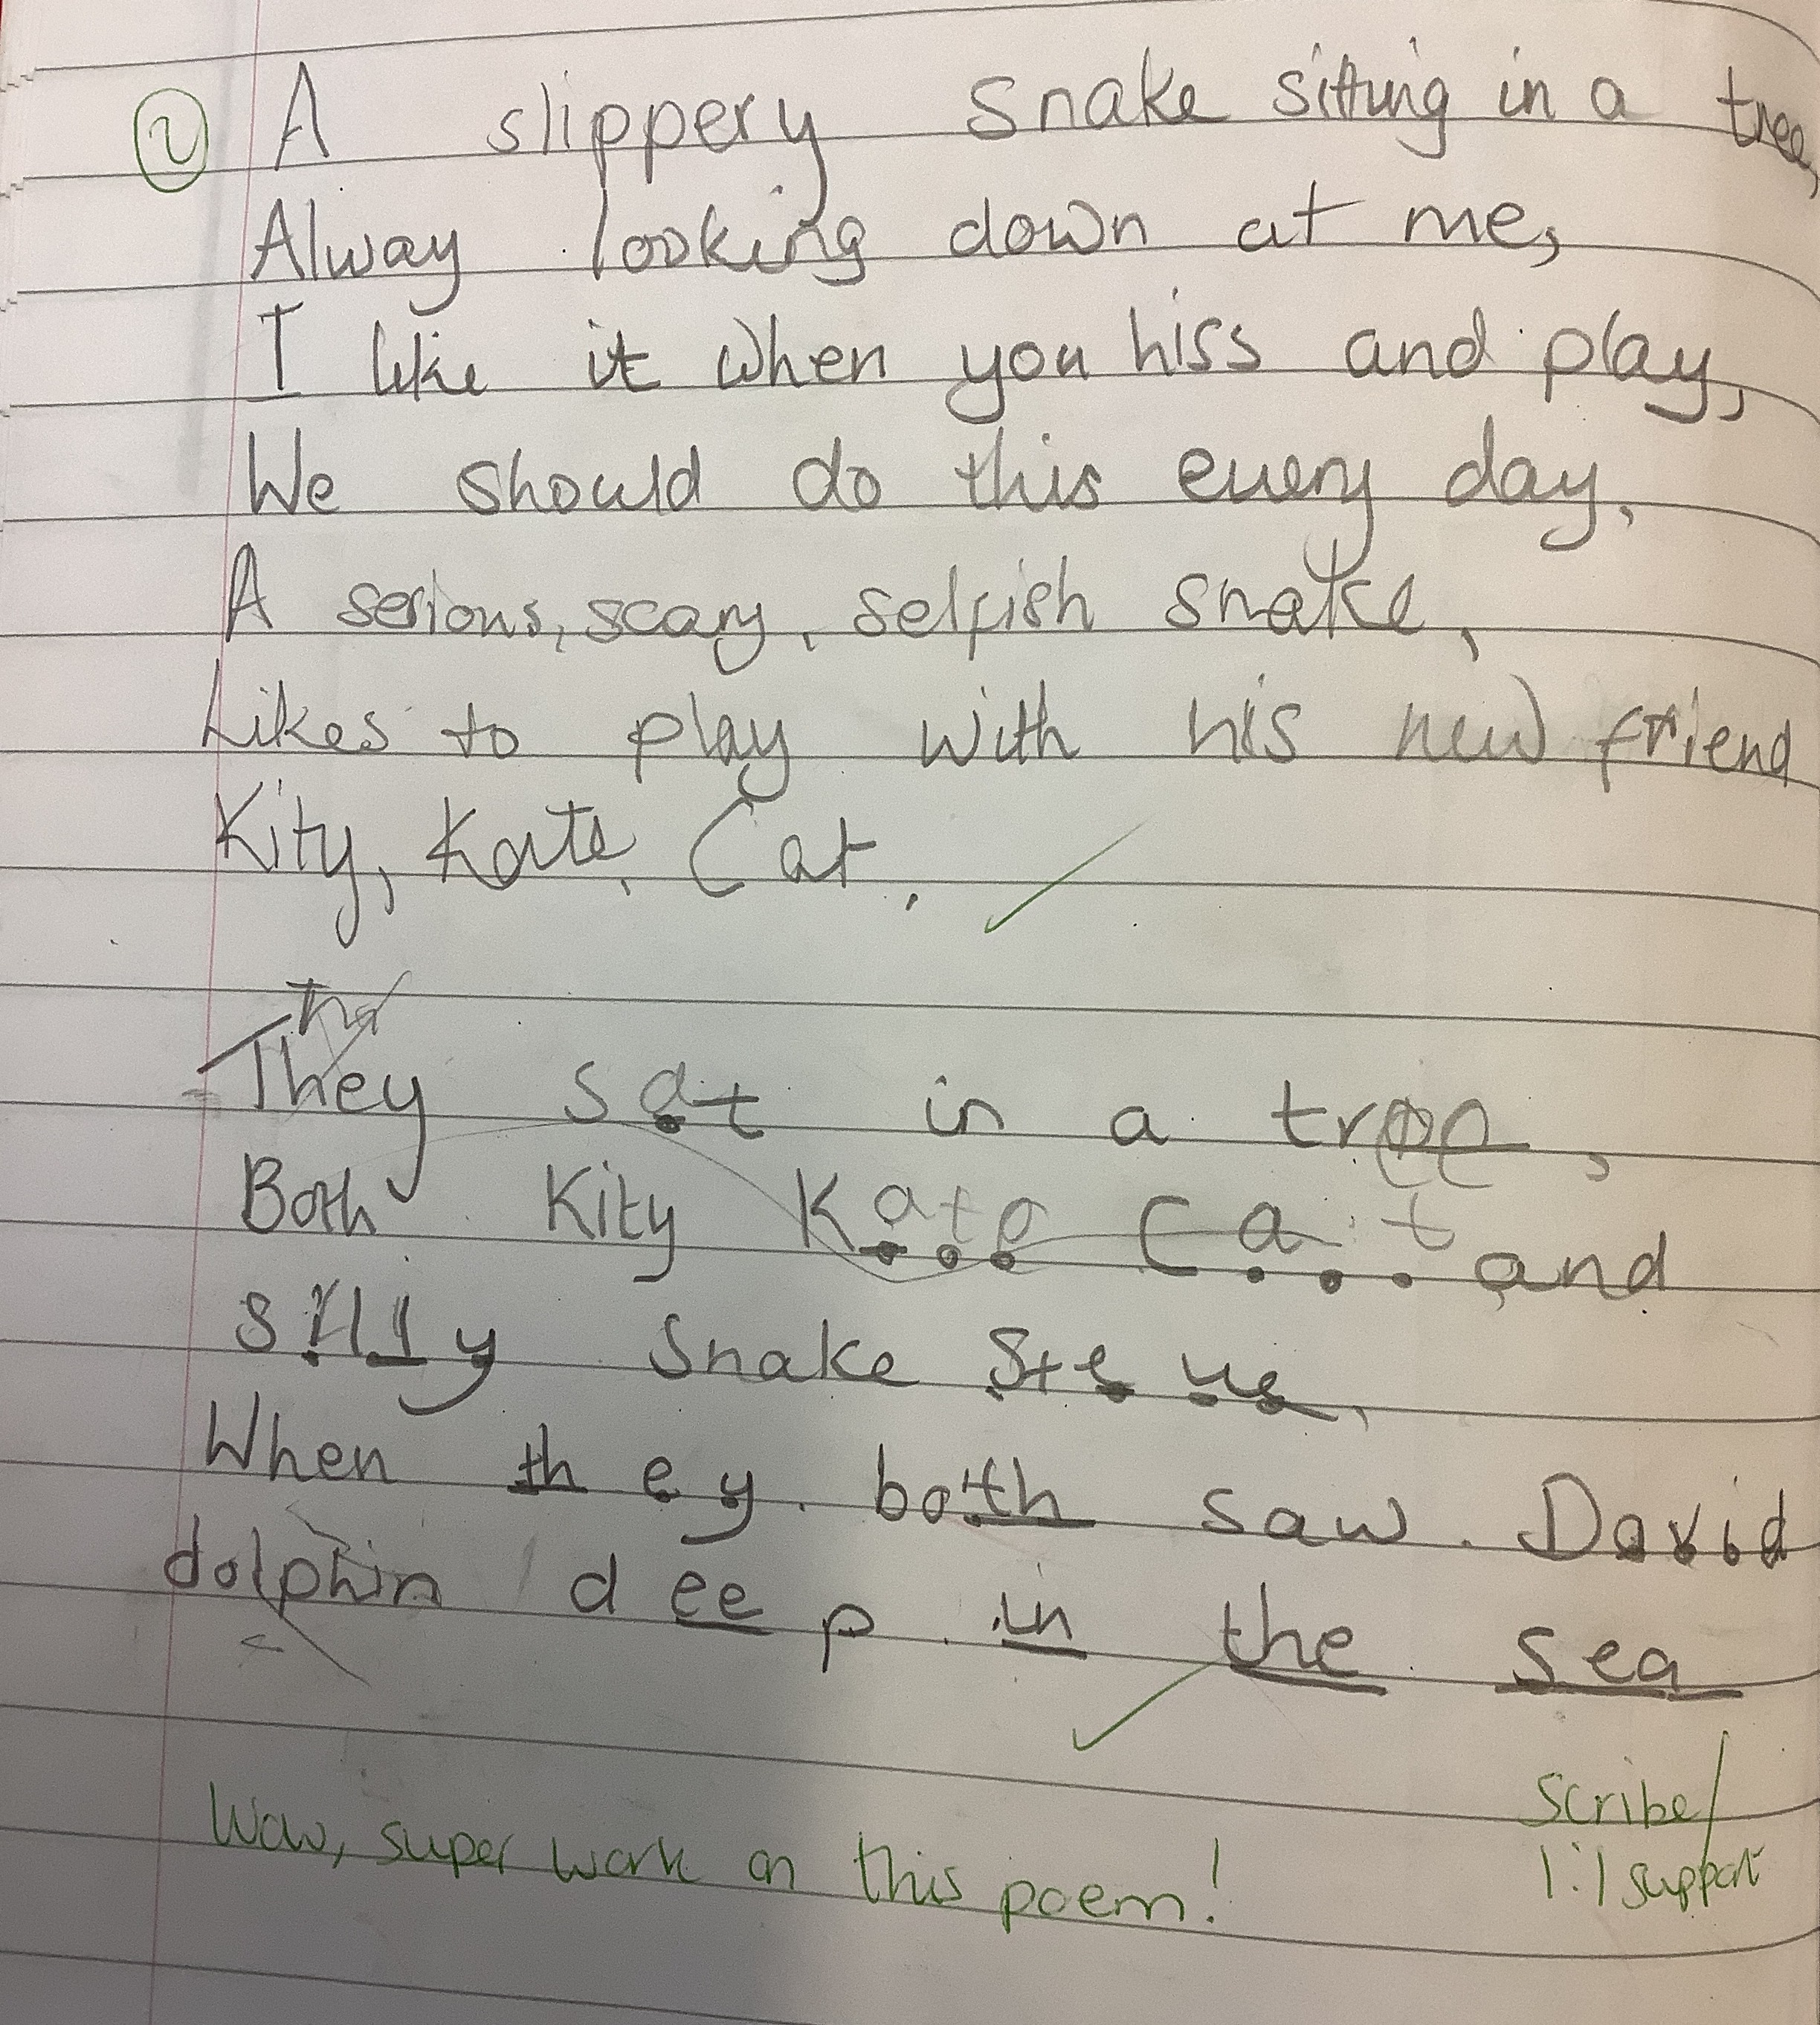 2 A slippery snake sitting in a tree,
Alway looking down at me,
I like it when you hiss and play,
We should do this every day.
A serious, scary, selfish snake,
Likes to play with his new friend
Kity, Kate, Cat.
They sat in a tree,
Both Kity Kate Cat and
silly snake Steve,
When they both saw David
dolphin deep in the sea
Scribe/
Wow, super work on this poem! 1:1 support